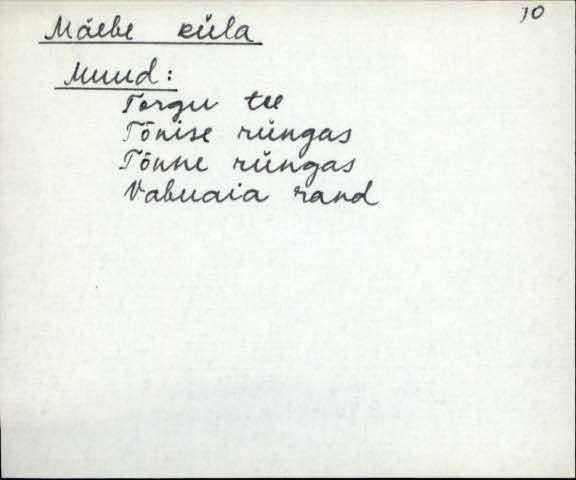 10
Mäebe küla
Muud:
Torgu tee
Tõnise rüngas
Tõnne rüngas
Vabuaia rand